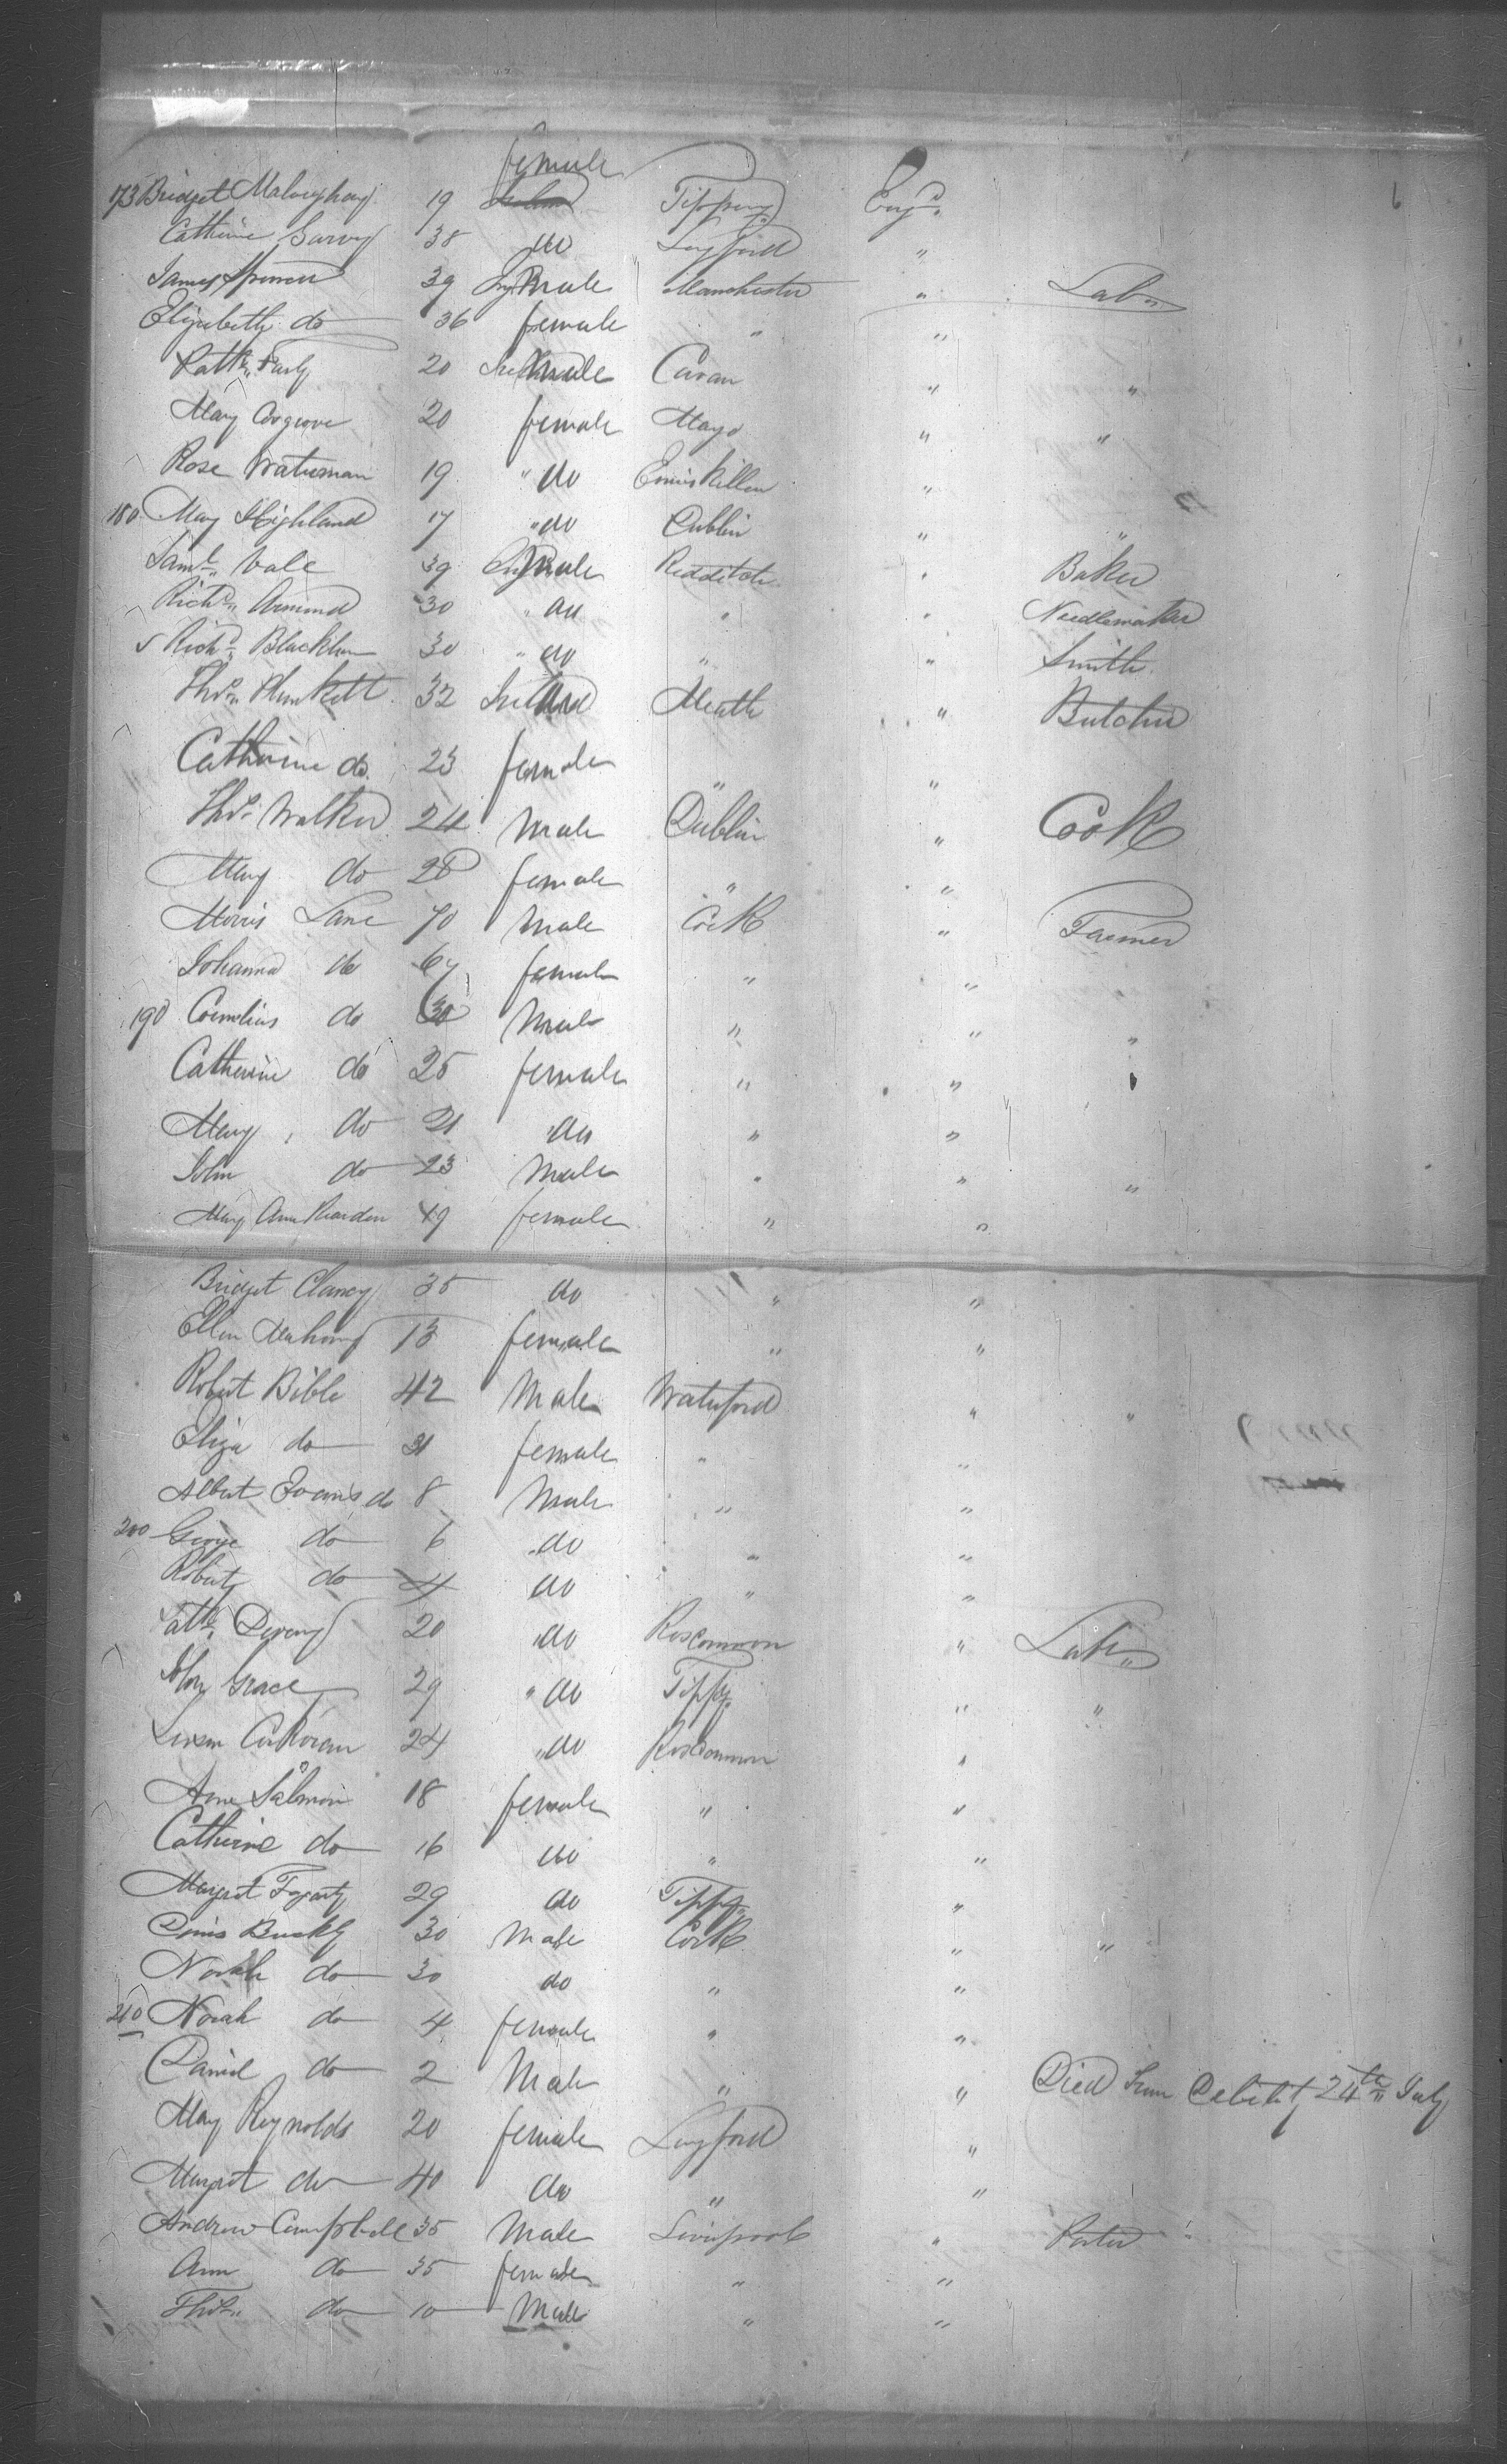 female
173 Bridget 19 Tippery Engd
Catherine Garvey 38 do Longford "
James Spencer 39 male Manchester " Labr
Elizabeth do 36 female " "
Patk Farly 20 male Cavan " "
Mary Cosgrove 20 female Mayo " "
Rose Waterman 19 " do Enniskillen "
180 Mary Highland 17 " do Dublin " "
Saml Vale 39 male Redditch " Baker
Richd Armond 30 " do " " Needlemaker
5 Richd 30 " do " " Smith
Thos Plunkett 32 Meath " Butcher
Catherine do 23 female " "
Thos Walker 24 Male Dublin " Cook
Mary do 28 female " "
Morris Lane 70 Male Cork " Farmer
Johanna do 67 female " "
190 Cornelius do 30 Male " " "
Catherine do 25 female " "
Mary do 21 do " "
John do 23 Male " " "
Mary Ann Rearden 19 female " "
Bridget Clancy 35 do " "
Ellen Mahony 13 female " "
Robert Bible 42 Male Waterford " "
Eliza do 31 female " "
Albert Evans do 8 Male " "
200 George do 6 do " "
Robert do 4 do " "
Patk 20 do Roscommon " Labr
John Grace 29 " do Tippy " "
Corkoran 24 " do Roscommon "
Anne Salmon 18 female " "
Catherine do 16 do " "
Margret Fogarty 29 do Tippy "
Denis Buckly 30 Male Cork " "
Norah do 30 do " "
210 Norah do 4 female " "
Daniel do 2 Male " " Died from Debility 24th July
Mary Reynolds 20 female Longford "
Margret do 40 do " "
Andrew Campbell 35 Male Liverpool " Porter
Ann do 35 female " "
Thos do 10 Male " "